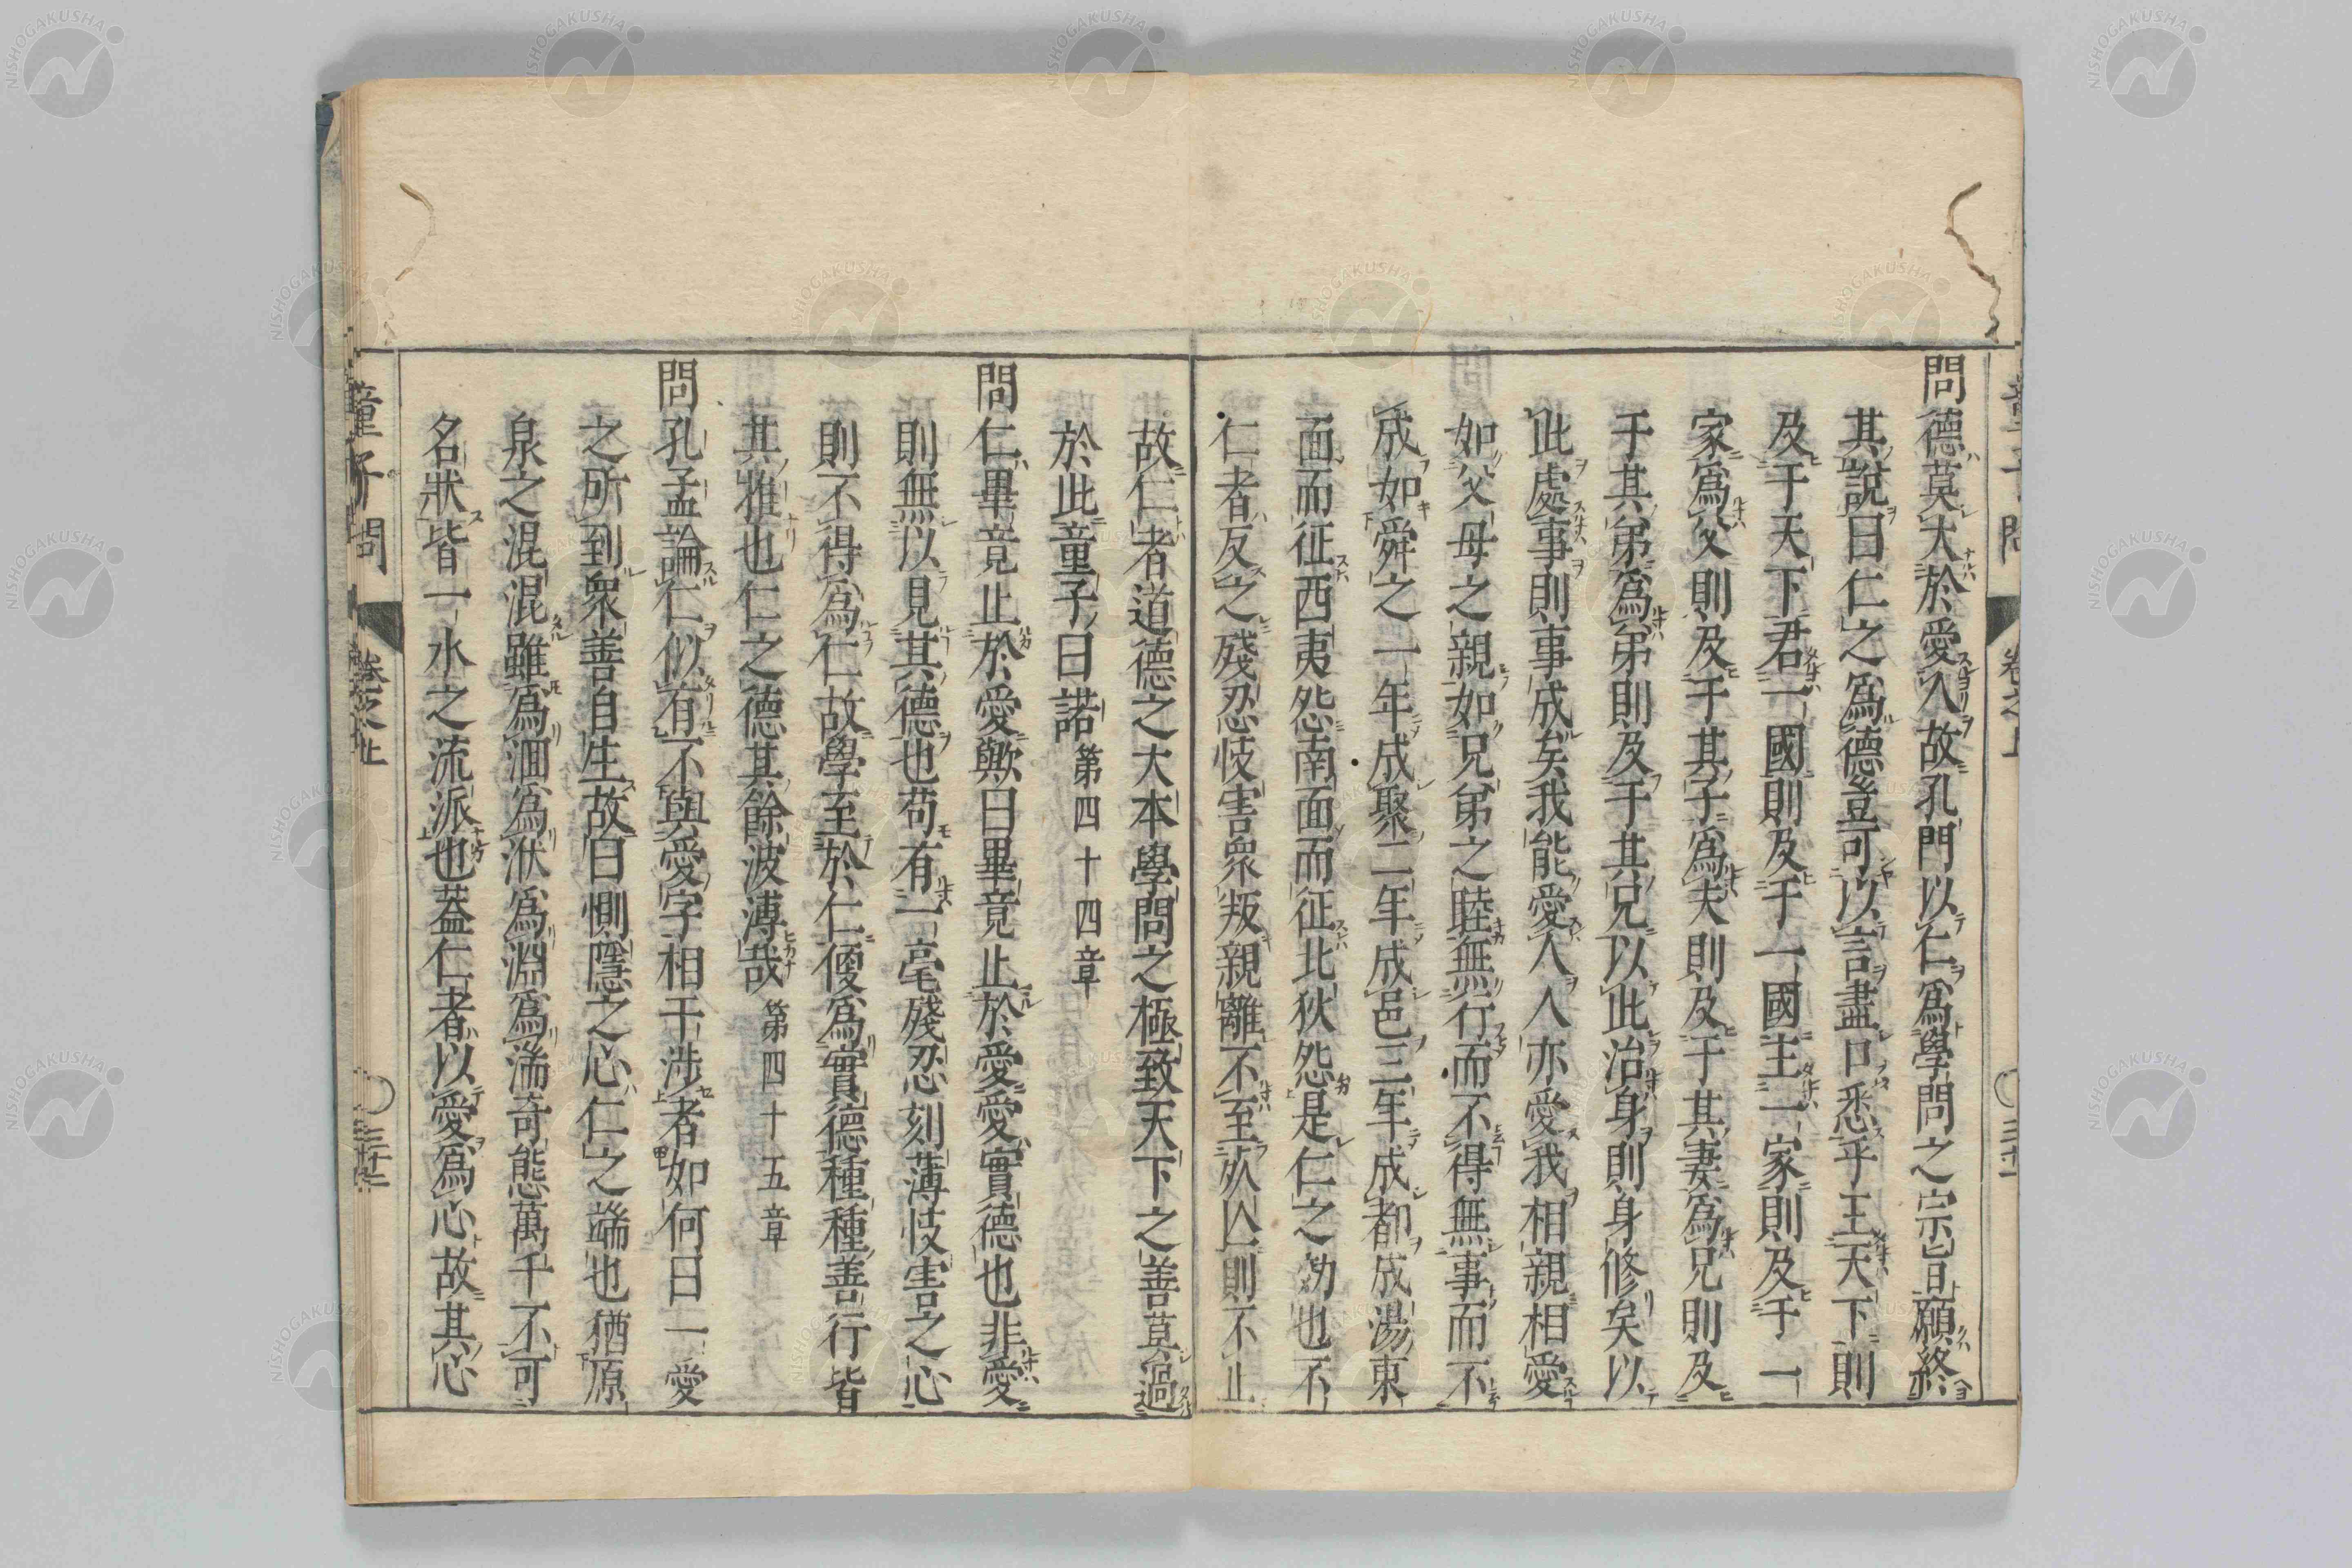 問德莫大於愛人故孔門以仁爲學問之宗旨願終
其說曰仁之爲德豈可以言盡口悉乎王天下則
及于天下君一國則及于一國主一家則及于一
家爲父則及于其子爲夫則及于其妻爲兄則及
于其弟爲弟則及于其兄以此治身則身修矣以
此處事則事成矣我能愛人人亦愛我相親相愛
如父母之親如兄弟之睦無行而不得無事而不
成如舜之一年成聚二年成邑三年成都成湯東
面而征西夷怨南面而征北狄怨是仁之効也不
仁者反之殘忍忮害衆叛親離不至於亾則不止
故仁者道德之大本學問之極致天下之善莫過
於此童子曰諾 第四十四章
問仁畢竟止於愛歟曰畢竟止於愛愛實德也非愛
則無以見其德也苟有一毫殘忍刻薄忮害之心
則不得爲仁故學至於仁便爲實德種種善行皆
其推也仁之德其餘波溥哉 第四十五章
問孔孟論仁似有不與愛字相干涉者如何曰一愛
之所到衆善自生故曰惻隱之心仁之端也猶原
泉之混混雖爲洄爲洑爲淵爲湍奇態萬千不可
名狀皆一水之流派也蓋仁者以愛爲心故其心
童子問 卷之上 三十二